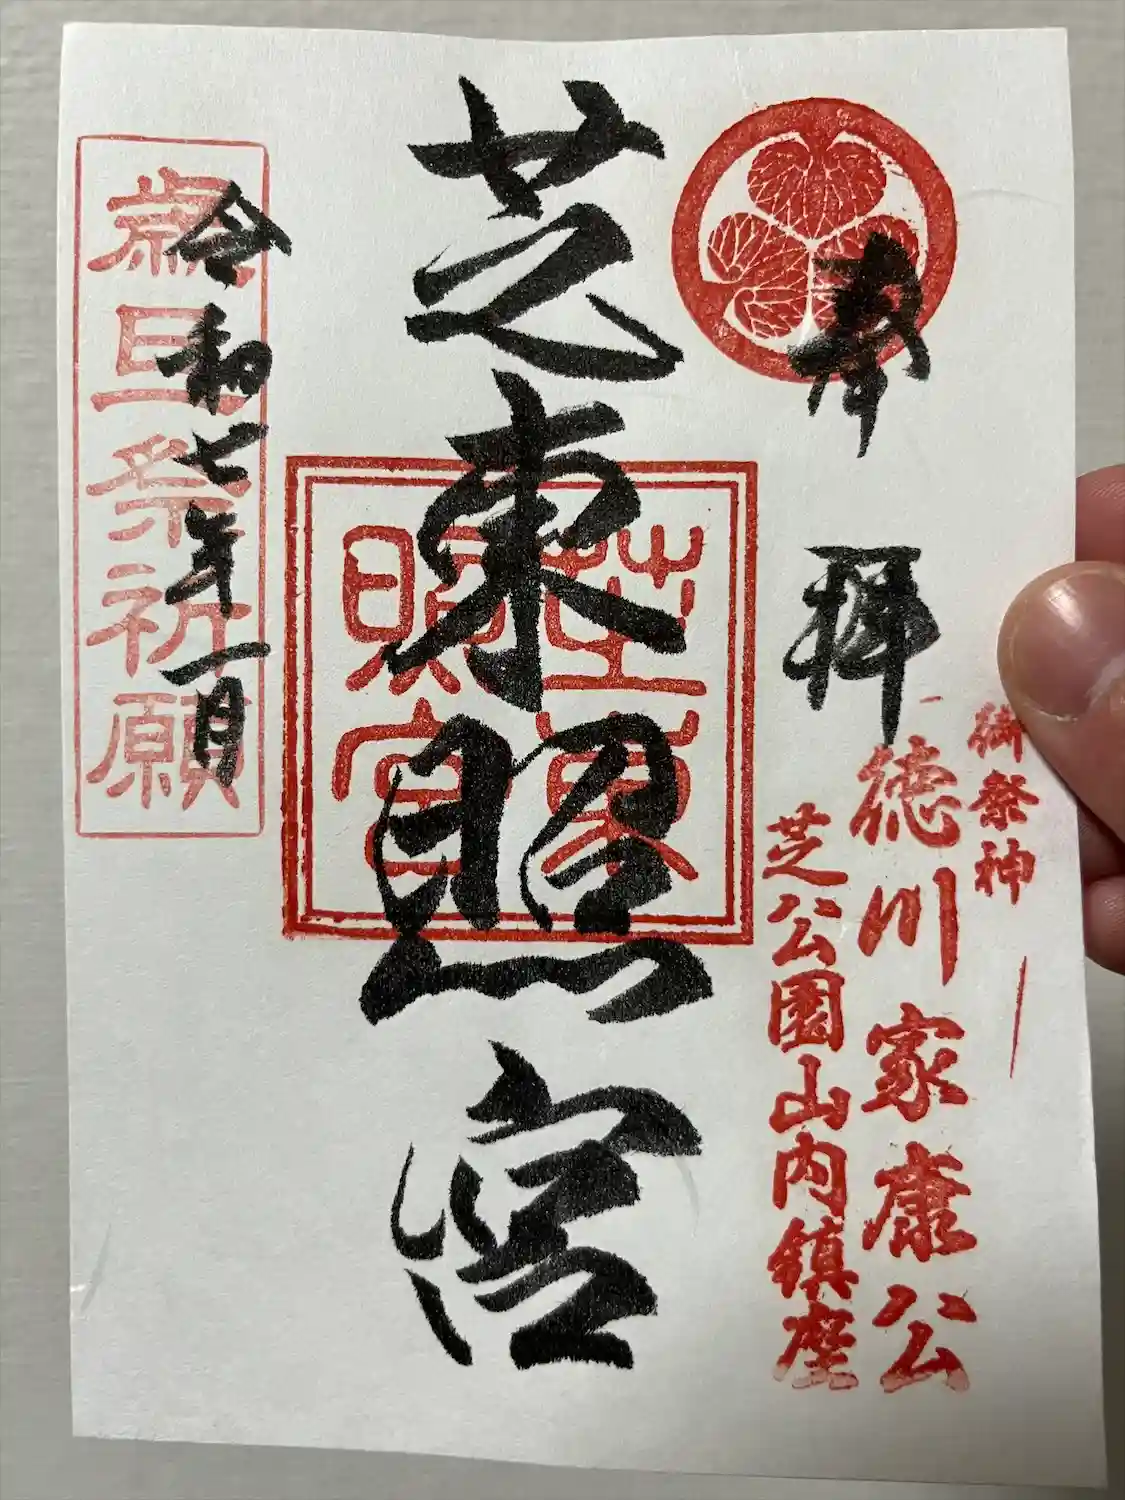 奉拝
御祭神
徳川家康公
芝公園山内鎮座
芝東照宮
芝東
照宮
歳旦祭祈願
令和七年一月